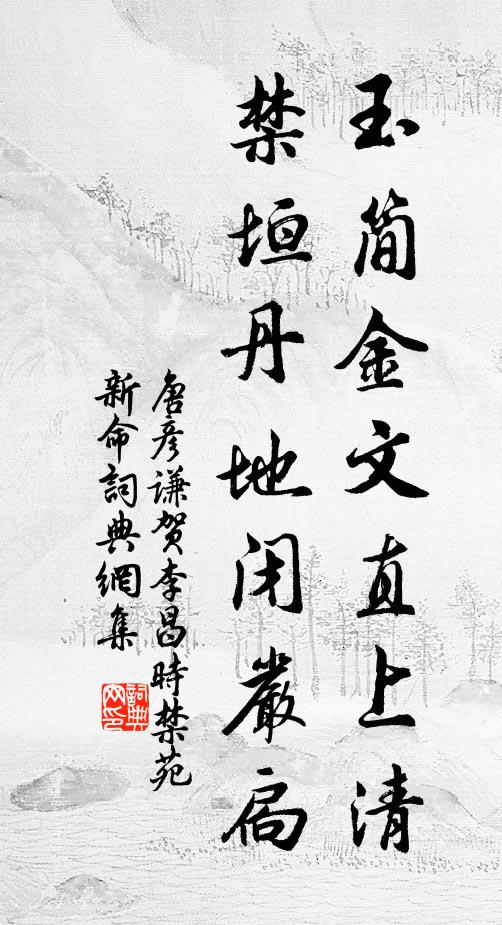 玉简金文直上清
禁垣丹地闭嚴扃
唐彦谦贺李昌時禁苑
新命詞典網集
詞典网印